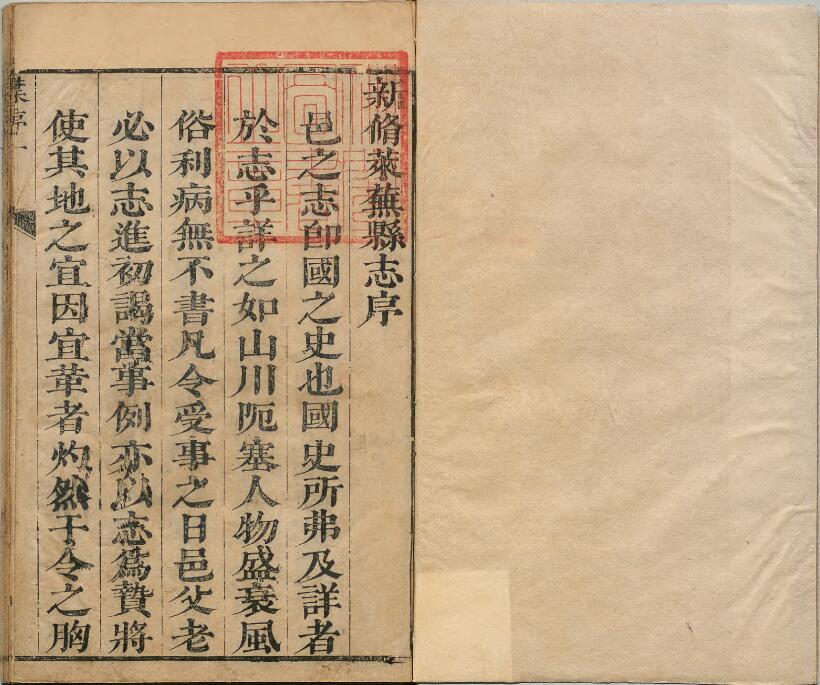 新脩萊蕪縣志序
邑之志卽國之史也國史所弗及詳者
於志乎詳之如山川阨塞人物盛衰風
俗利病無不書凡令受事之日邑父老
必以志進初謁當事例亦以志爲贄將
使其地之宜因宜革者灼然于令之胸
葉序一